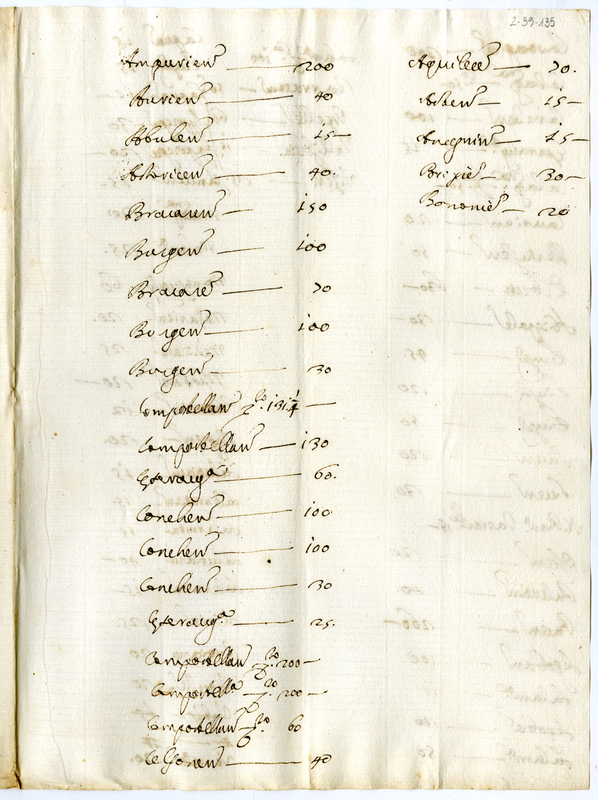 2-39-135
Ampurien̄ — 200
Aurien̄ — 40
Abulen̄ — 15 —
Astoricen̄ — 40.
Bracaren̄ — 150
Burgen̄ — 100
Bracaren̄ — 70
Burgen̄ — 100
Burgen̄ — 30
Compostellan̄ 131 1/4 —
Compostellan̄ — 130
60.
Conchen̄ — 100
Conchen̄ — 100
Conchen̄ — 30
25.
Compostellan̄ 200 —
Compostella 200 —
Compostellan̄ 60
40
Aquileien̄ — 70.
Asten̄ — 15 —
15 —
30 —
Bononien̄ — 20